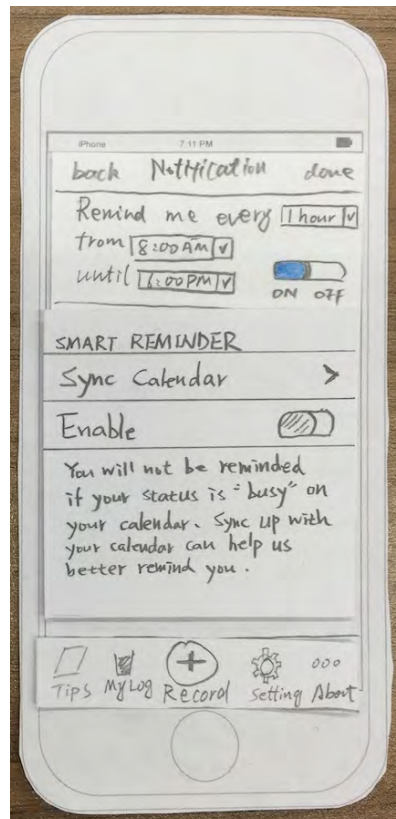 iPhone 7:11 PM
back Notification done
Remind me every 1 hour
from 8:00 AM
until 6:00 PM
ON OFF
SMART REMINDER
Sync Calendar >
Enable
You will not be reminded
if your status is "busy" on
your calendar. Sync up with
your calendar can help us
better remind you.
Tips My Log Record Setting About